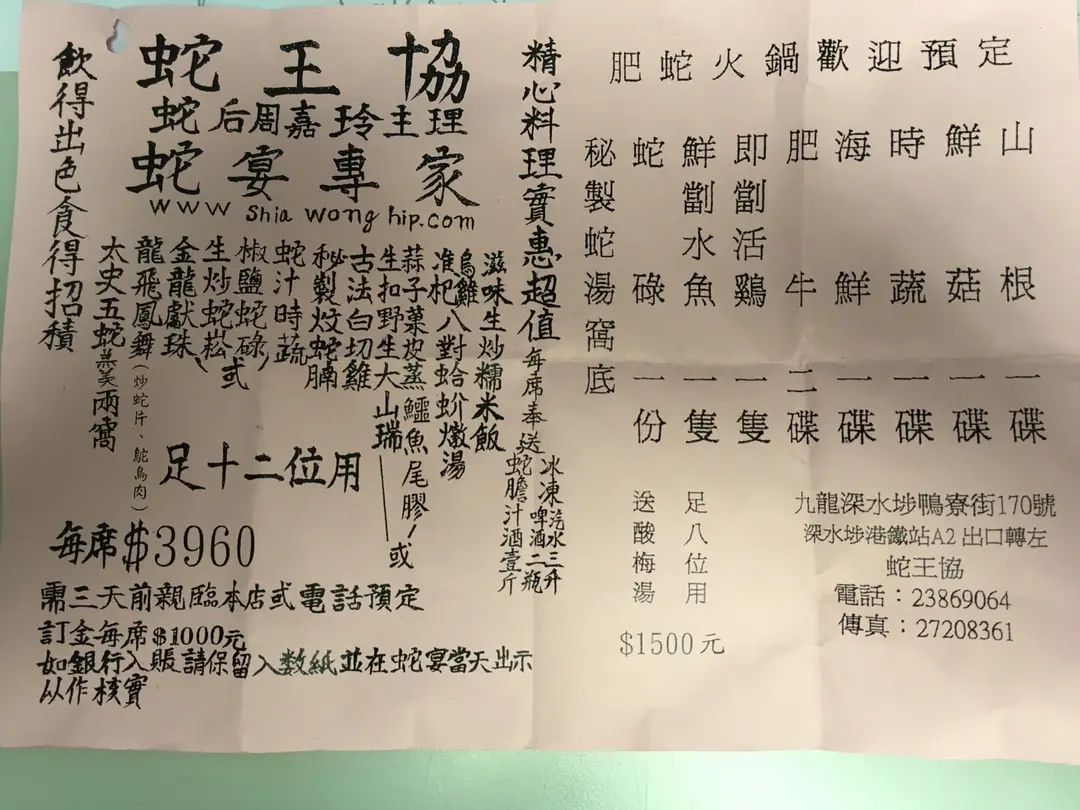 蛇王協
蛇后周嘉玲主理
蛇宴專家
www shia wong hip.com
飲得出色食得招積
精心料理實惠超值
每席奉送
冰凍汽水三升
啤酒二瓶
蛇膽汁酒壹斤
太史五蛇羹兩窩
龍飛鳳舞(炒蛇片、鴕鳥肉)
金龍獻珠、
生炒蛇崧或
椒鹽蛇碌/
蛇汁時蔬
秘製炆蛇腩
古法白切雞
生扣野生大山瑞——或
蒜子菜皮蒸鱷魚尾膠/
准杞八對蛤蚧燉湯
烏雞
滋味生炒糯米飯
足十二位用
每席$3960
需三天前親臨本店或電話預定
訂金每席$1000元
如銀行入賬請保留入数紙並在蛇宴當天出示
以作核實
肥蛇火鍋歡迎預定
山根一碟
鮮菇一碟
時蔬一碟
海鮮一碟
肥牛二碟
即劏活鷄一隻
鮮劏水魚一隻
蛇碌一份
秘製蛇湯窩底
足八位用
送酸梅湯
$1500元
九龍深水埗鴨寮街170號
深水埗港鐵站A2 出口轉左
蛇王協
電話：23869064
傳真：27208361